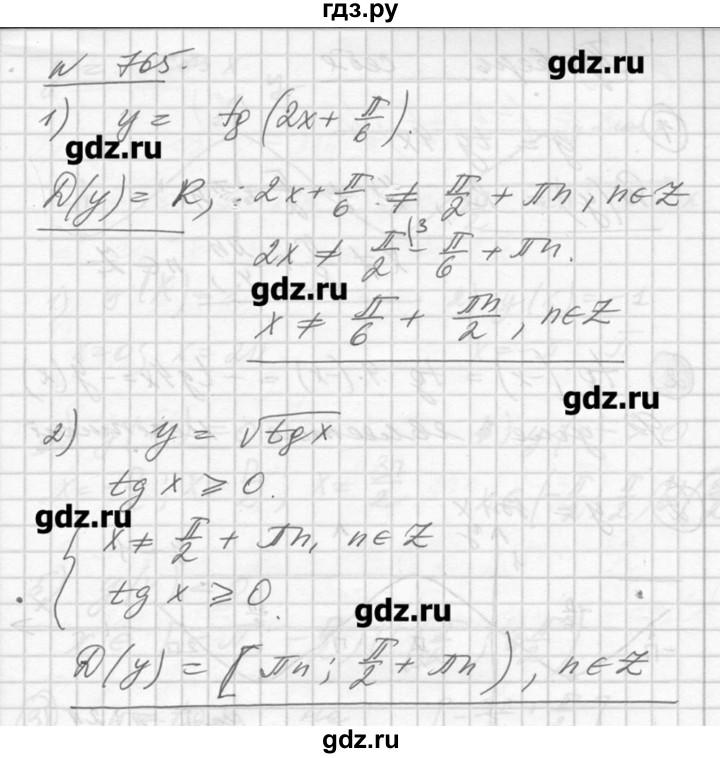 гдз.ру
N 765.
gdz.ru
1) y = tg (2x + π/6).
gdz.ru
D(y) = R, : 2x + π/6 ≠ π/2 + πn, n ∈ Z
2x ≠ π/2 (3 − π/6 + πn.
gdz.ru
x ≠ π/6 + πn/2, n ∈ Z
gdz.ru
2) y = √tg x
tg x ⩾ 0.
gdz.ru
{ x ≠ π/2 + πn, n ∈ Z
tg x ⩾ 0.
gdz.ru
D(y) = [πn; π/2 + πn), n ∈ Z
gdz.ru